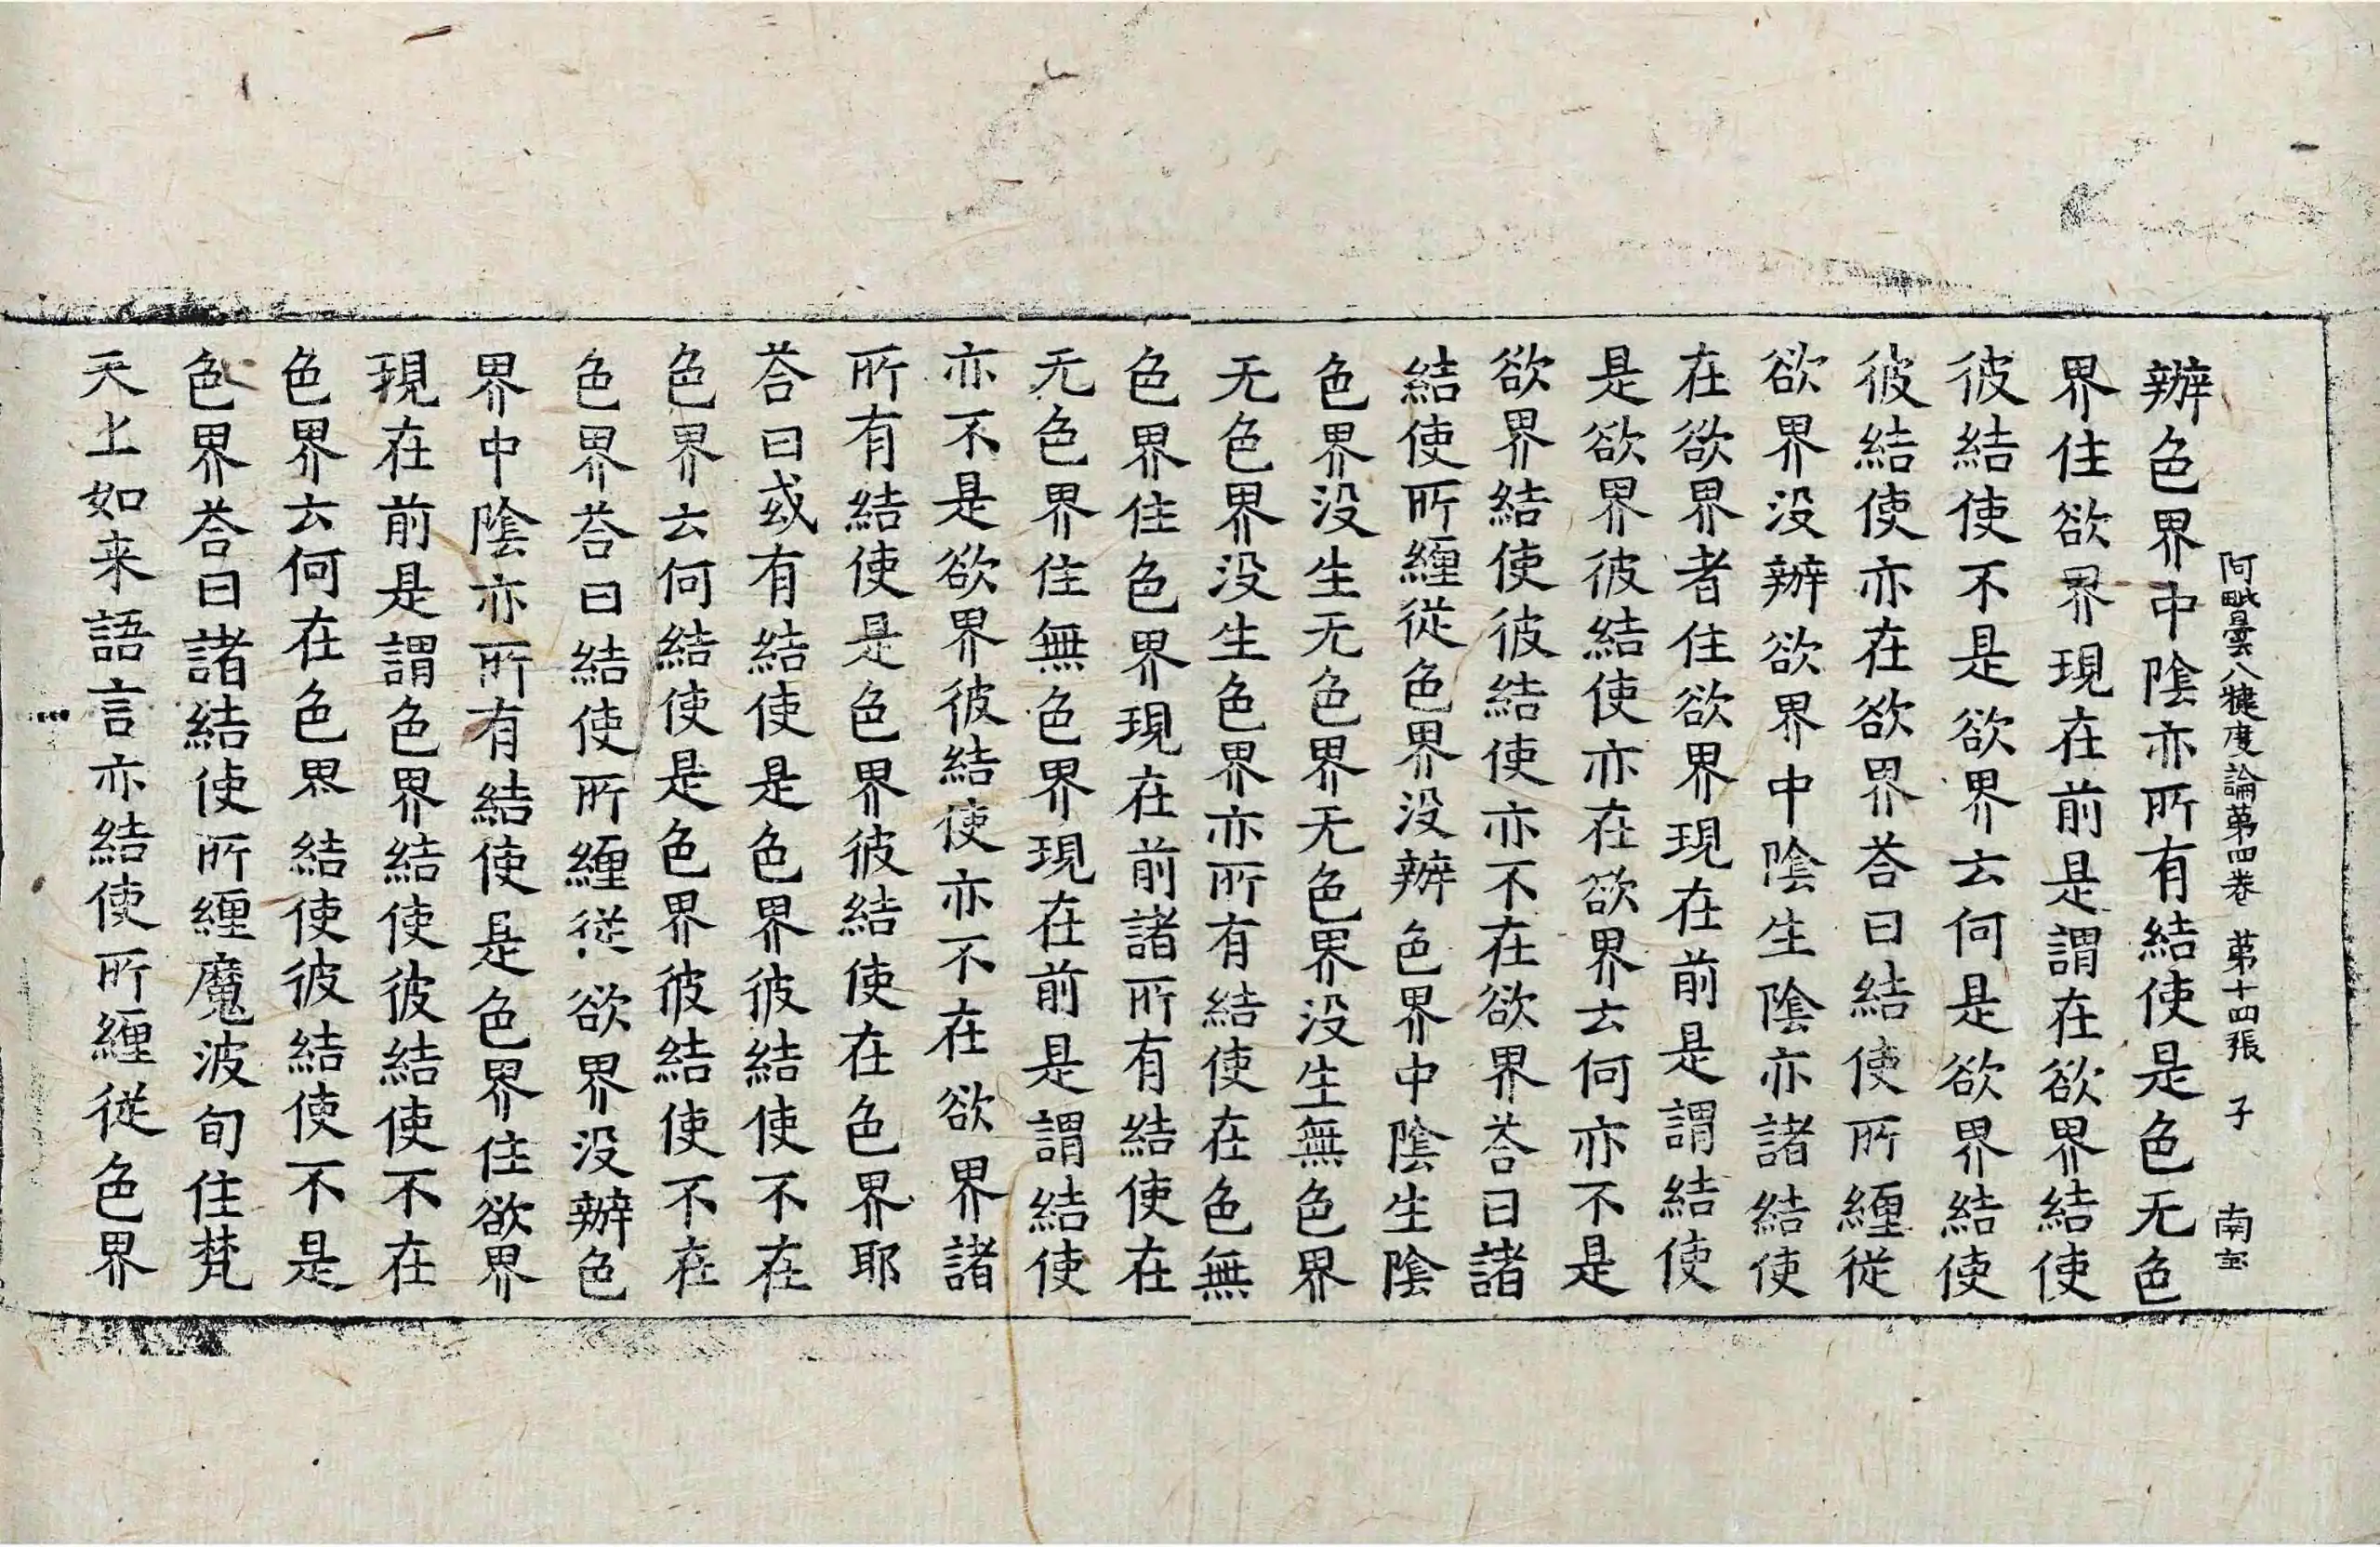 阿毗曇八犍度論苐四卷　苐十四張　子　南宝
辦色界中陰亦所有結使是色无色
界住欲界現在前是謂在欲界結使
彼結使不是欲界云何是欲界結使
彼結使亦在欲界荅曰結使所纒從
欲界没辦欲界中陰生陰亦諸結使
在欲界者住欲界現在前是謂結使
是欲界彼結使亦在欲界云何亦不是
欲界結使彼結使亦不在欲界荅曰諸
結使所纒從色界没辦色界中陰生陰
色界没生无色界无色界没生無色界
无色界没生色界亦所有結使在色無
色界住色界現在前諸所有結使在
无色界住無色界現在前是謂結使
亦不是欲界彼結使亦不在欲界諸
所有結使是色界彼結使在色界耶
荅曰或有結使是色界彼結使不在
色界云何結使是色界彼結使不在
色界荅曰結使所纒從欲界没辦色
界中陰亦所有結使是色界住欲界
現在前是謂色界結使彼結使不在
色界云何在色界結使彼結使不是
色界荅曰諸結使所纒魔波旬住梵
天上如来語言亦結使所纒從色界